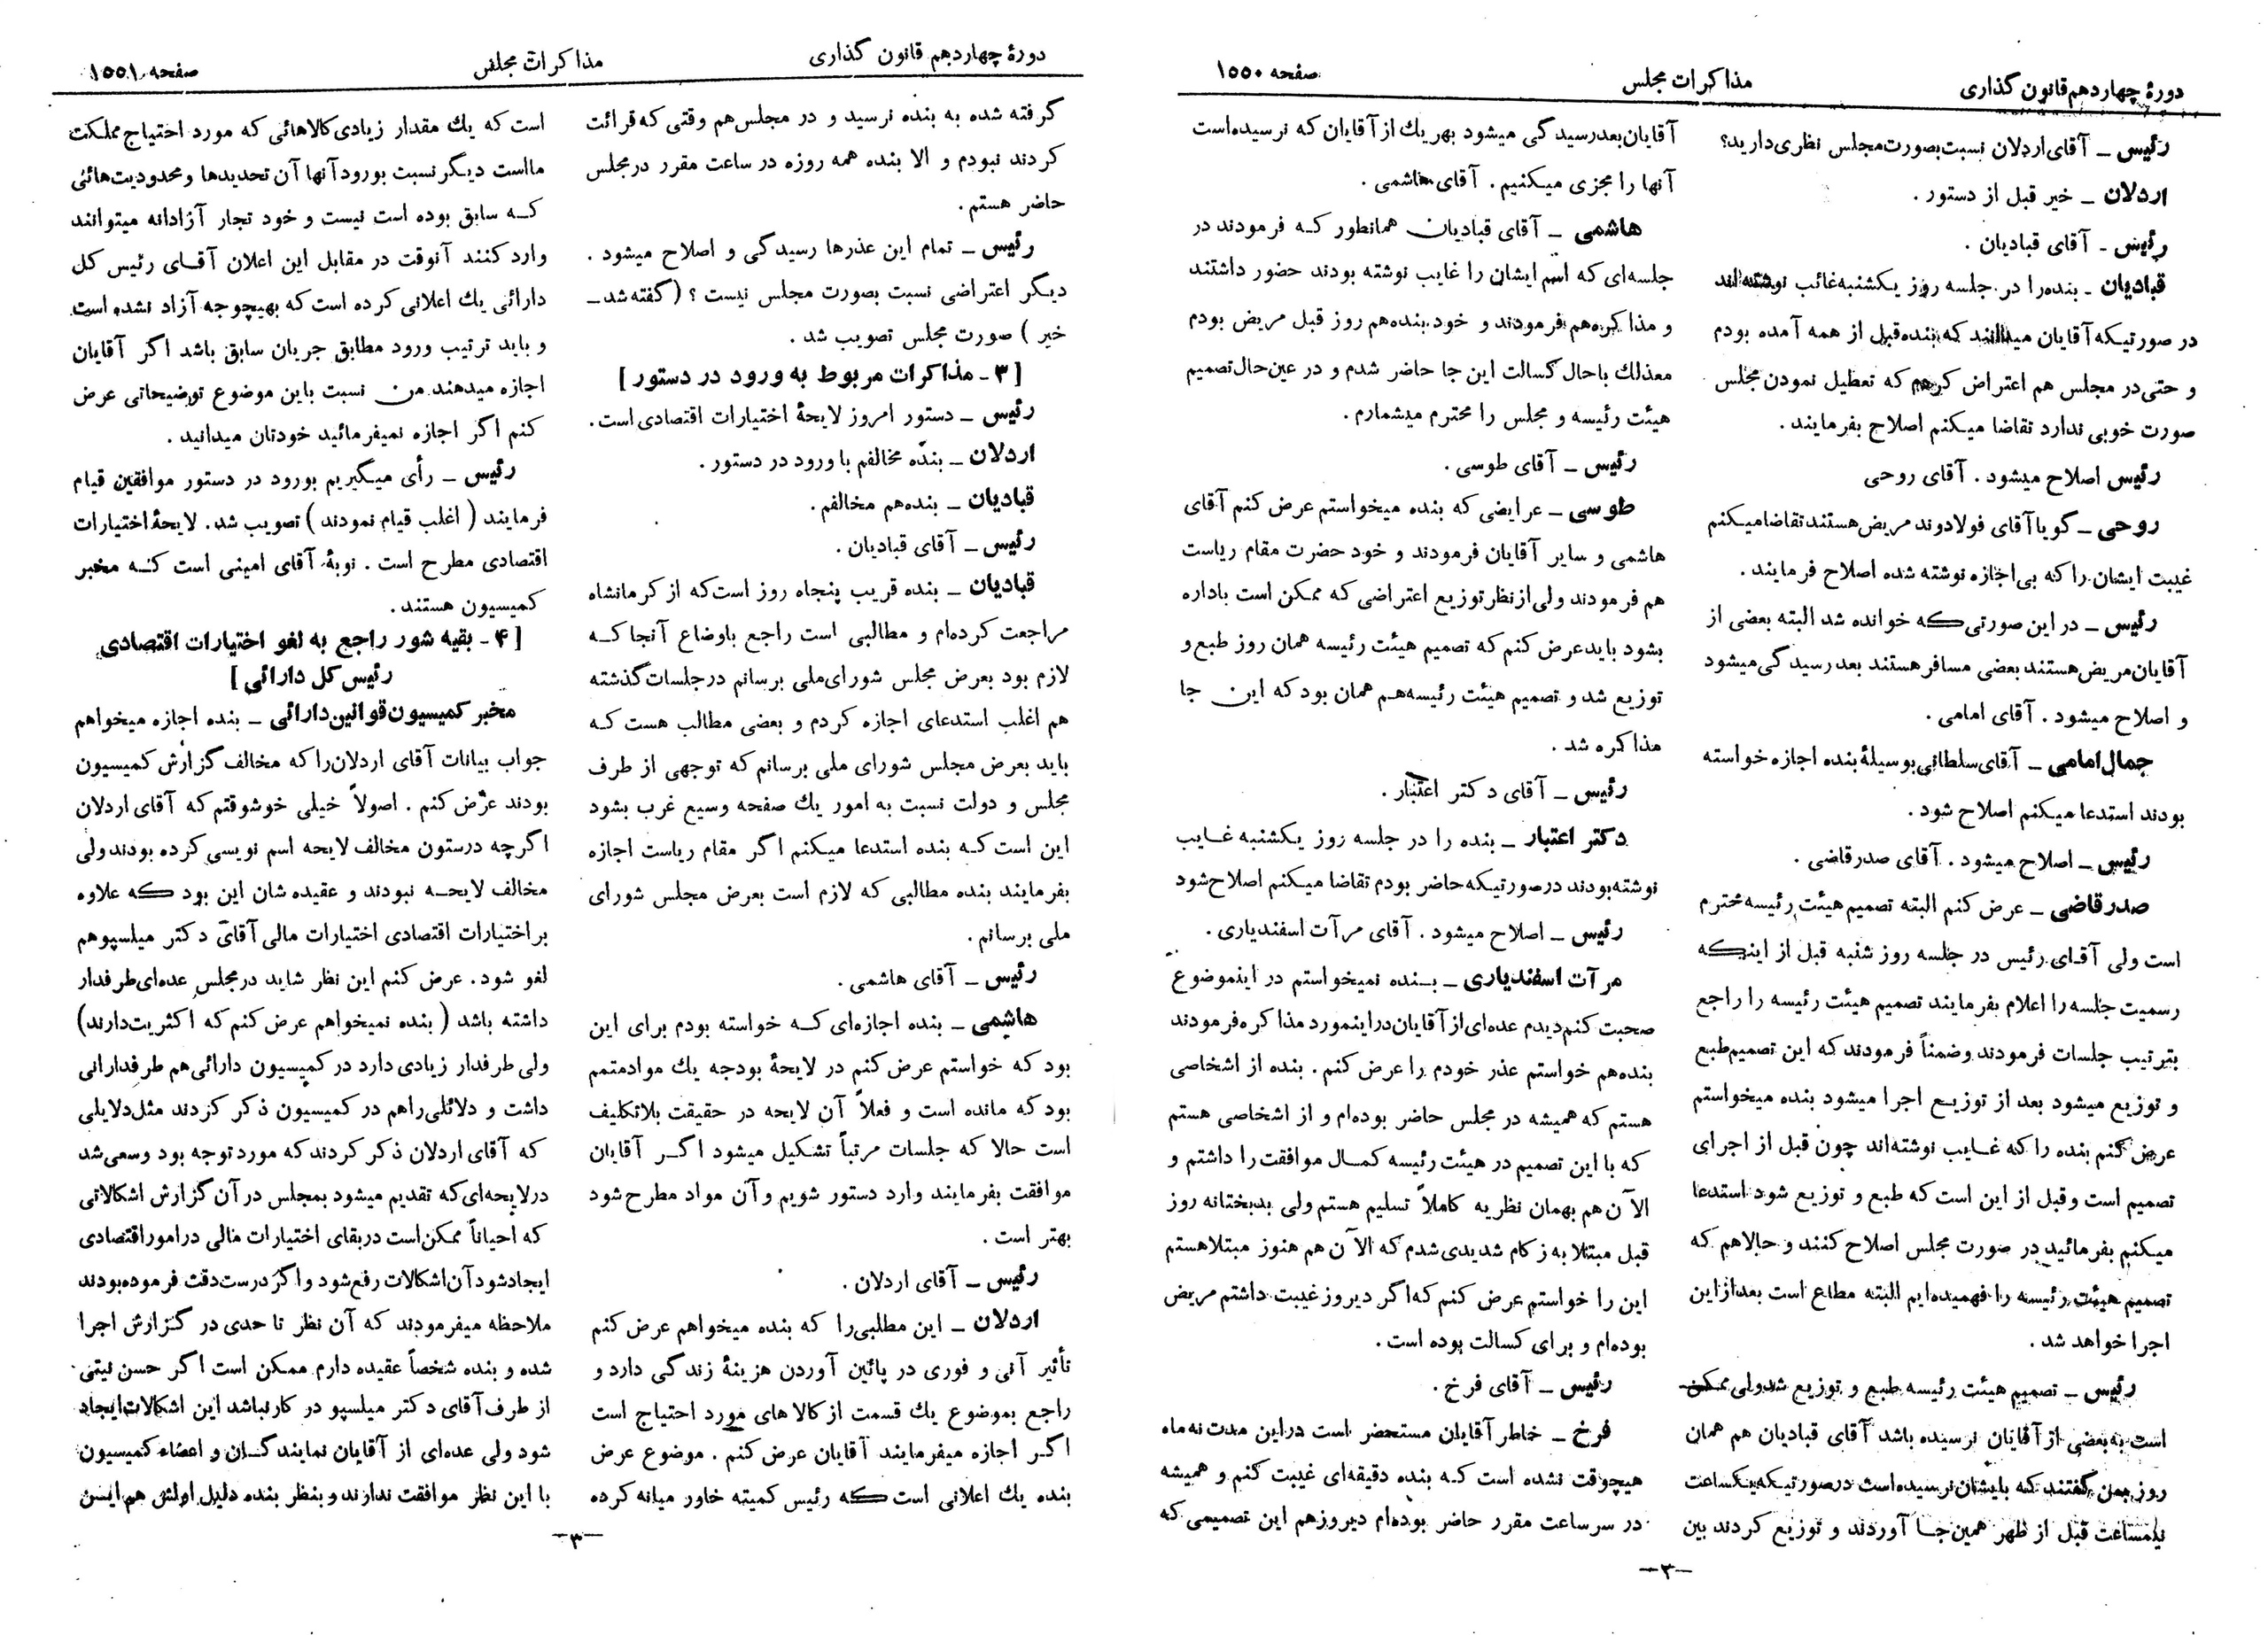 دورهٔ چهاردهم قانون گذاری
مذاکرات مجلس
صفحه ۱۵۵۰
رئیس ــ آقای اردلان نسبت بصورت مجلس نظری دارید؟
اردلان ــ خیر قبل از دستور .
رئیس ــ آقای قبادیان .
قبادیان ــ بنده را در جلسه روز یکشنبه غائب نوشته‌اند
در صورتیکه آقایان میدانند که بنده قبل از همه آمده بودم
و حتی در مجلس هم اعتراض کردم که تعطیل نمودن مجلس
صورت خوبی ندارد تقاضا میکنم اصلاح بفرمایند .
رئیس اصلاح میشود . آقای روحی
روحی ــ گویا آقای فولادوند مریض هستند تقاضا میکنم
غیبت ایشان را که بی‌اجازه نوشته شده اصلاح فرمایند .
رئیس ــ در این صورتی که خوانده شد البته بعضی از
آقایان مریض هستند بعضی مسافر هستند بعد رسیدگی میشود
و اصلاح میشود . آقای امامی .
جمال امامی ــ آقای سلطانی بوسیلهٔ بنده اجازه خواسته
بودند استدعا میکنم اصلاح شود .
رئیس ــ اصلاح میشود . آقای صدرقاضی .
صدرقاضی ــ عرض کنم البته تصمیم هیئت رئیسه محترم
است ولی آقای رئیس در جلسه روز شنبه قبل از اینکه
رسمیت جلسه را اعلام بفرمایند تصمیم هیئت رئیسه را راجع
بترتیب جلسات فرمودند وضمناً فرمودند که این تصمیم طبع
و توزیع میشود بعد از توزیع اجرا میشود بنده میخواستم
عرض کنم بنده را که غایب نوشته‌اند چون قبل از اجرای
تصمیم است و قبل از این است که طبع و توزیع شود استدعا
میکنم بفرمائید در صورت مجلس اصلاح کنند و حالا هم که
تصمیم هیئت رئیسه را فهمیده‌ایم البته مطاع است بعد از این
اجرا خواهد شد .
رئیس ــ تصمیم هیئت رئیسه طبع و توزیع شد ولی ممکن
است به بعضی از آقایان نرسیده باشد آقای قبادیان هم همان
روز بمن گفتند که بایشان نرسیده است در صورتیکه یکساعت
نیمساعت قبل از ظهر همین جا آوردند و توزیع کردند بین
آقایان بعد رسیدگی میشود بهر یك از آقایان که نرسیده است
آنها را مجزی میکنیم . آقای هاشمی .
هاشمی ــ آقای قبادیان همانطور که فرمودند در
جلسه‌ای که اسم ایشان را غایب نوشته بودند حضور داشتند
و مذاکره هم فرمودند و خود بنده هم روز قبل مریض بودم
معذلك باحال کسالت این جا حاضر شدم و در عین حال تصمیم
هیئت رئیسه و مجلس را محترم میشمارم .
رئیس ــ آقای طوسی .
طوسی ــ عرایضی که بنده میخواستم عرض کنم آقای
هاشمی و سایر آقایان فرمودند و خود حضرت مقام ریاست
هم فرمودند ولی از نظر توزیع اعتراضی که ممکن است باداره
بشود باید عرض کنم که تصمیم هیئت رئیسه همان روز طبع و
توزیع شد و تصمیم هیئت رئیسه هم همان بود که این جا
مذاکره شد .
رئیس ــ آقای دکتر اعتبار .
دکتر اعتبار ــ بنده را در جلسه روز یکشنبه غایب
نوشته بودند در صورتیکه حاضر بودم تقاضا میکنم اصلاح شود
رئیس ــ اصلاح میشود . آقای مرآت اسفندیاری .
مرآت اسفندیاری ــ بنده نمیخواستم در اینموضوع
صحبت کنم دیدم عده‌ای از آقایان در اینمورد مذاکره فرمودند
بنده هم خواستم عذر خودم را عرض کنم . بنده از اشخاصی
هستم که همیشه در مجلس حاضر بوده‌ام و از اشخاصی هستم
که با این تصمیم در هیئت رئیسه کمال موافقت را داشتم و
الآن هم بهمان نظریه کاملاً تسلیم هستم ولی بدبختانه روز
قبل مبتلا به زکام شدیدی شدم که الآن هم هنوز مبتلا هستم
این را خواستم عرض کنم که اگر دیروز غیبت داشتم مریض
بوده‌ام و برای کسالت بوده است .
رئیس ــ آقای فرخ .
فرخ ــ خاطر آقایان مستحضر است در این مدت نه ماه
هیچوقت نشده است که بنده دقیقه‌ای غیبت کنم و همیشه
در سر ساعت مقرر حاضر بوده‌ام دیروز هم این تصمیمی که
ــ۳ــ
دورهٔ چهاردهم قانون گذاری
مذاکرات مجلس
صفحه ۱۵۵۱
گرفته شده به بنده نرسید و در مجلس هم وقتی که قرائت
کردند نبودم و الا بنده همه روزه در ساعت مقرر در مجلس
حاضر هستم .
رئیس ــ تمام این عذرها رسیدگی و اصلاح میشود .
دیگر اعتراضی نسبت بصورت مجلس نیست ؟ ( گفته شد ــ
خیر ) صورت مجلس تصویب شد .
[ ۳ ــ مذاکرات مربوط به ورود در دستور ]
رئیس ــ دستور امروز لایحهٔ اختیارات اقتصادی است .
اردلان ــ بنده مخالفم با ورود در دستور .
قبادیان ــ بنده هم مخالفم .
رئیس ــ آقای قبادیان .
قبادیان ــ بنده قریب پنجاه روز است که از کرمانشاه
مراجعت کرده‌ام و مطالبی است راجع باوضاع آنجا که
لازم بود بعرض مجلس شورای ملی برسانم در جلسات گذشته
هم اغلب استدعای اجازه کردم و بعضی مطالب هست که
باید بعرض مجلس شورای ملی برسانم که توجهی از طرف
مجلس و دولت نسبت به امور یك صفحه وسیع غرب بشود
این است که بنده استدعا میکنم اگر مقام ریاست اجازه
بفرمایند بنده مطالبی که لازم است بعرض مجلس شورای
ملی برسانم .
رئیس ــ آقای هاشمی .
هاشمی ــ بنده اجازه‌ای که خواسته بودم برای این
بود که خواستم عرض کنم در لایحهٔ بودجه یك مواد متمم
بود که مانده است و فعلاً آن لایحه در حقیقت بلاتکلیف
است حالا که جلسات مرتباً تشکیل میشود اگر آقایان
موافقت بفرمایند وارد دستور شویم و آن مواد مطرح شود
بهتر است .
رئیس ــ آقای اردلان .
اردلان ــ این مطلبی را که بنده میخواهم عرض کنم
تأثیر آنی و فوری در پائین آوردن هزینهٔ زندگی دارد و
راجع بموضوع یك قسمت از کالاهای مورد احتیاج است
اگر اجازه میفرمایند آقایان عرض کنم . موضوع عرض
بنده یك اعلانی است که رئیس کمیته خاور میانه کرده
است که یك مقدار زیادی کالاهائی که مورد احتیاج مملکت
ما است دیگر نسبت بورود آنها آن تحدیدها و محدودیت‌هائی
که سابق بوده است نیست و خود تجار آزادانه میتوانند
وارد کنند آنوقت در مقابل این اعلان آقای رئیس کل
دارائی یك اعلانی کرده است که بهیچوجه آزاد نشده است
و باید ترتیب ورود مطابق جریان سابق باشد اگر آقایان
اجازه میدهند من نسبت باین موضوع توضیحاتی عرض
کنم اگر اجازه نمیفرمائید خودتان میدانید .
رئیس ــ رأی میگیریم بورود در دستور موافقین قیام
فرمایند ( اغلب قیام نمودند ) تصویب شد . لایحهٔ اختیارات
اقتصادی مطرح است . نوبهٔ آقای امینی است که مخبر
کمیسیون هستند .
[ ۴ ــ بقیه شور راجع به لغو اختیارات اقتصادی
رئیس کل دارائی ]
مخبر کمیسیون قوانین دارائی ــ بنده اجازه میخواهم
جواب بیانات آقای اردلان را که مخالف گزارش کمیسیون
بودند عرض کنم . اصولاً خیلی خوشوقتم که آقای اردلان
اگرچه در ستون مخالف لایحه اسم نویسی کرده بودند ولی
مخالف لایحه نبودند و عقیده شان این بود که علاوه
بر اختیارات اقتصادی اختیارات مالی آقای دکتر میلسپو هم
لغو شود . عرض کنم این نظر شاید در مجلس عده‌ای طرفدار
داشته باشد ( بنده نمیخواهم عرض کنم که اکثریت دارند )
ولی طرفدار زیادی دارد در کمیسیون دارائی هم طرفدارانی
داشت و دلائلی را هم در کمیسیون ذکر کردند مثل دلایلی
که آقای اردلان ذکر کردند که مورد توجه بود وسعی شد
در لایحه‌ای که تقدیم میشود بمجلس در آن گزارش اشکالاتی
که احیاناً ممکن است در بقای اختیارات مالی در امور اقتصادی
ایجاد شود آن اشکالات رفع شود و اگر درست دقت فرموده بودند
ملاحظه میفرمودند که آن نظر تا حدی در گزارش اجرا
شده و بنده شخصاً عقیده دارم ممکن است اگر حسن نیتی
از طرف آقای دکتر میلسپو در کار نباشد این اشکالات ایجاد
شود ولی عده‌ای از آقایان نمایندگان و اعضاء کمیسیون
با این نظر موافقت ندارند و بنظر بنده دلیل اولش هم این
ــ۳ــ